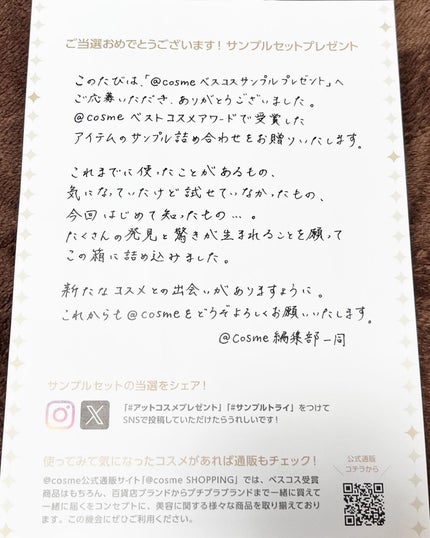 ご当選おめでとうございます！サンプルセットプレゼント
このたびは、「@cosme ベスコスサンプルプレゼント」へ
ご応募いただき、ありがとうございました。
@cosme ベストコスメアワードで受賞した
アイテムのサンプル詰め合わせをお贈りいたします。
これまでに使ったことがあるもの、
気になっていたけど試せていなかったもの、
今回はじめて知ったもの…。
たくさんの発見と驚きが生まれることを願って
この箱に詰め込みました。
新たなコスメとの出会いがありますように。
これからも@cosmeをどうぞよろしくお願いいたします。
@cosme 編集部一同
サンプルセットの当選をシェア！
「#アットコスメプレゼント」「#サンプルトライ」をつけて
SNSで投稿していただけたらうれしいです！
使ってみて気になったコスメがあれば通販もチェック！
公式通販
コチラから
@cosme公式通販サイト「@cosme SHOPPING」では、ベスコス受賞
商品はもちろん、百貨店ブランドからプチプラブランドまで一緒に買えて
一緒に届くをコンセプトに、美容に関する様々な商品を取り揃えており
ます。この機会にぜひご利用ください。